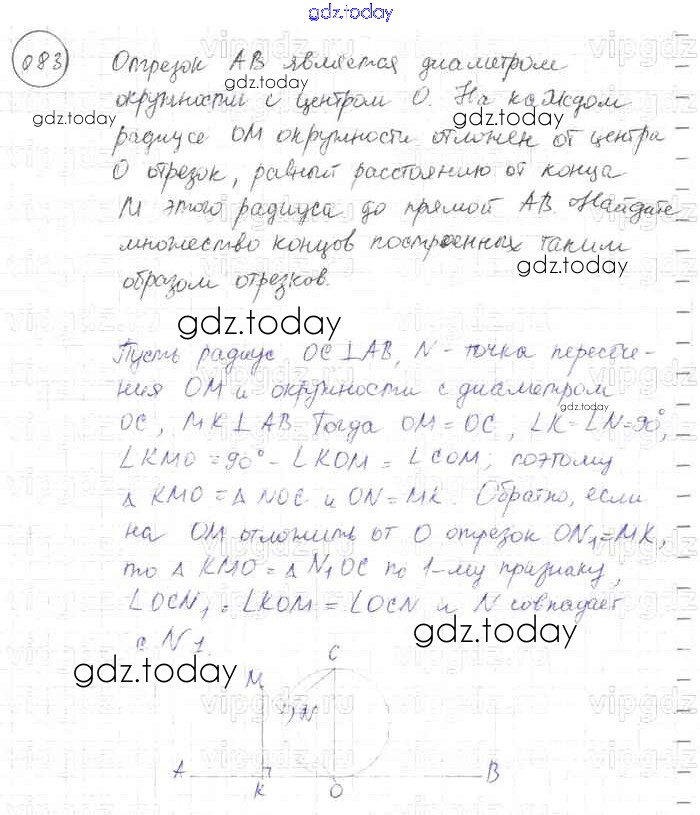 gdz.today
083
Отрезок AB является диаметром
окружности с центром O. На каждом
радиусе OM окружности отложен от центра
O отрезок, равный расстоянию от конца
M этого радиуса до прямой AB. Найдите
множество концов построенных таким
образом отрезков.
Пусть радиус OC⊥AB, N - точка пересече-
ния OM и окружности с диаметром
OC, MK⊥AB. Тогда OM=OC, ∠K=∠N=90°,
∠KMO=90°-∠KOM=∠COM; поэтому
△KMO=△NOC и ON=MK. Обратно, если
на OM отложить от O отрезок ON₁=MK,
то △KMO=△N₁OC по 1-му признаку,
∠OCN₁=∠KOM=∠OCN и N совпадает
с N1.
C
M
N
A
K
O
B
gdz.today
gdz.today
gdz.today
gdz.today
gdz.today
gdz.today
gdz.today
gdz.today